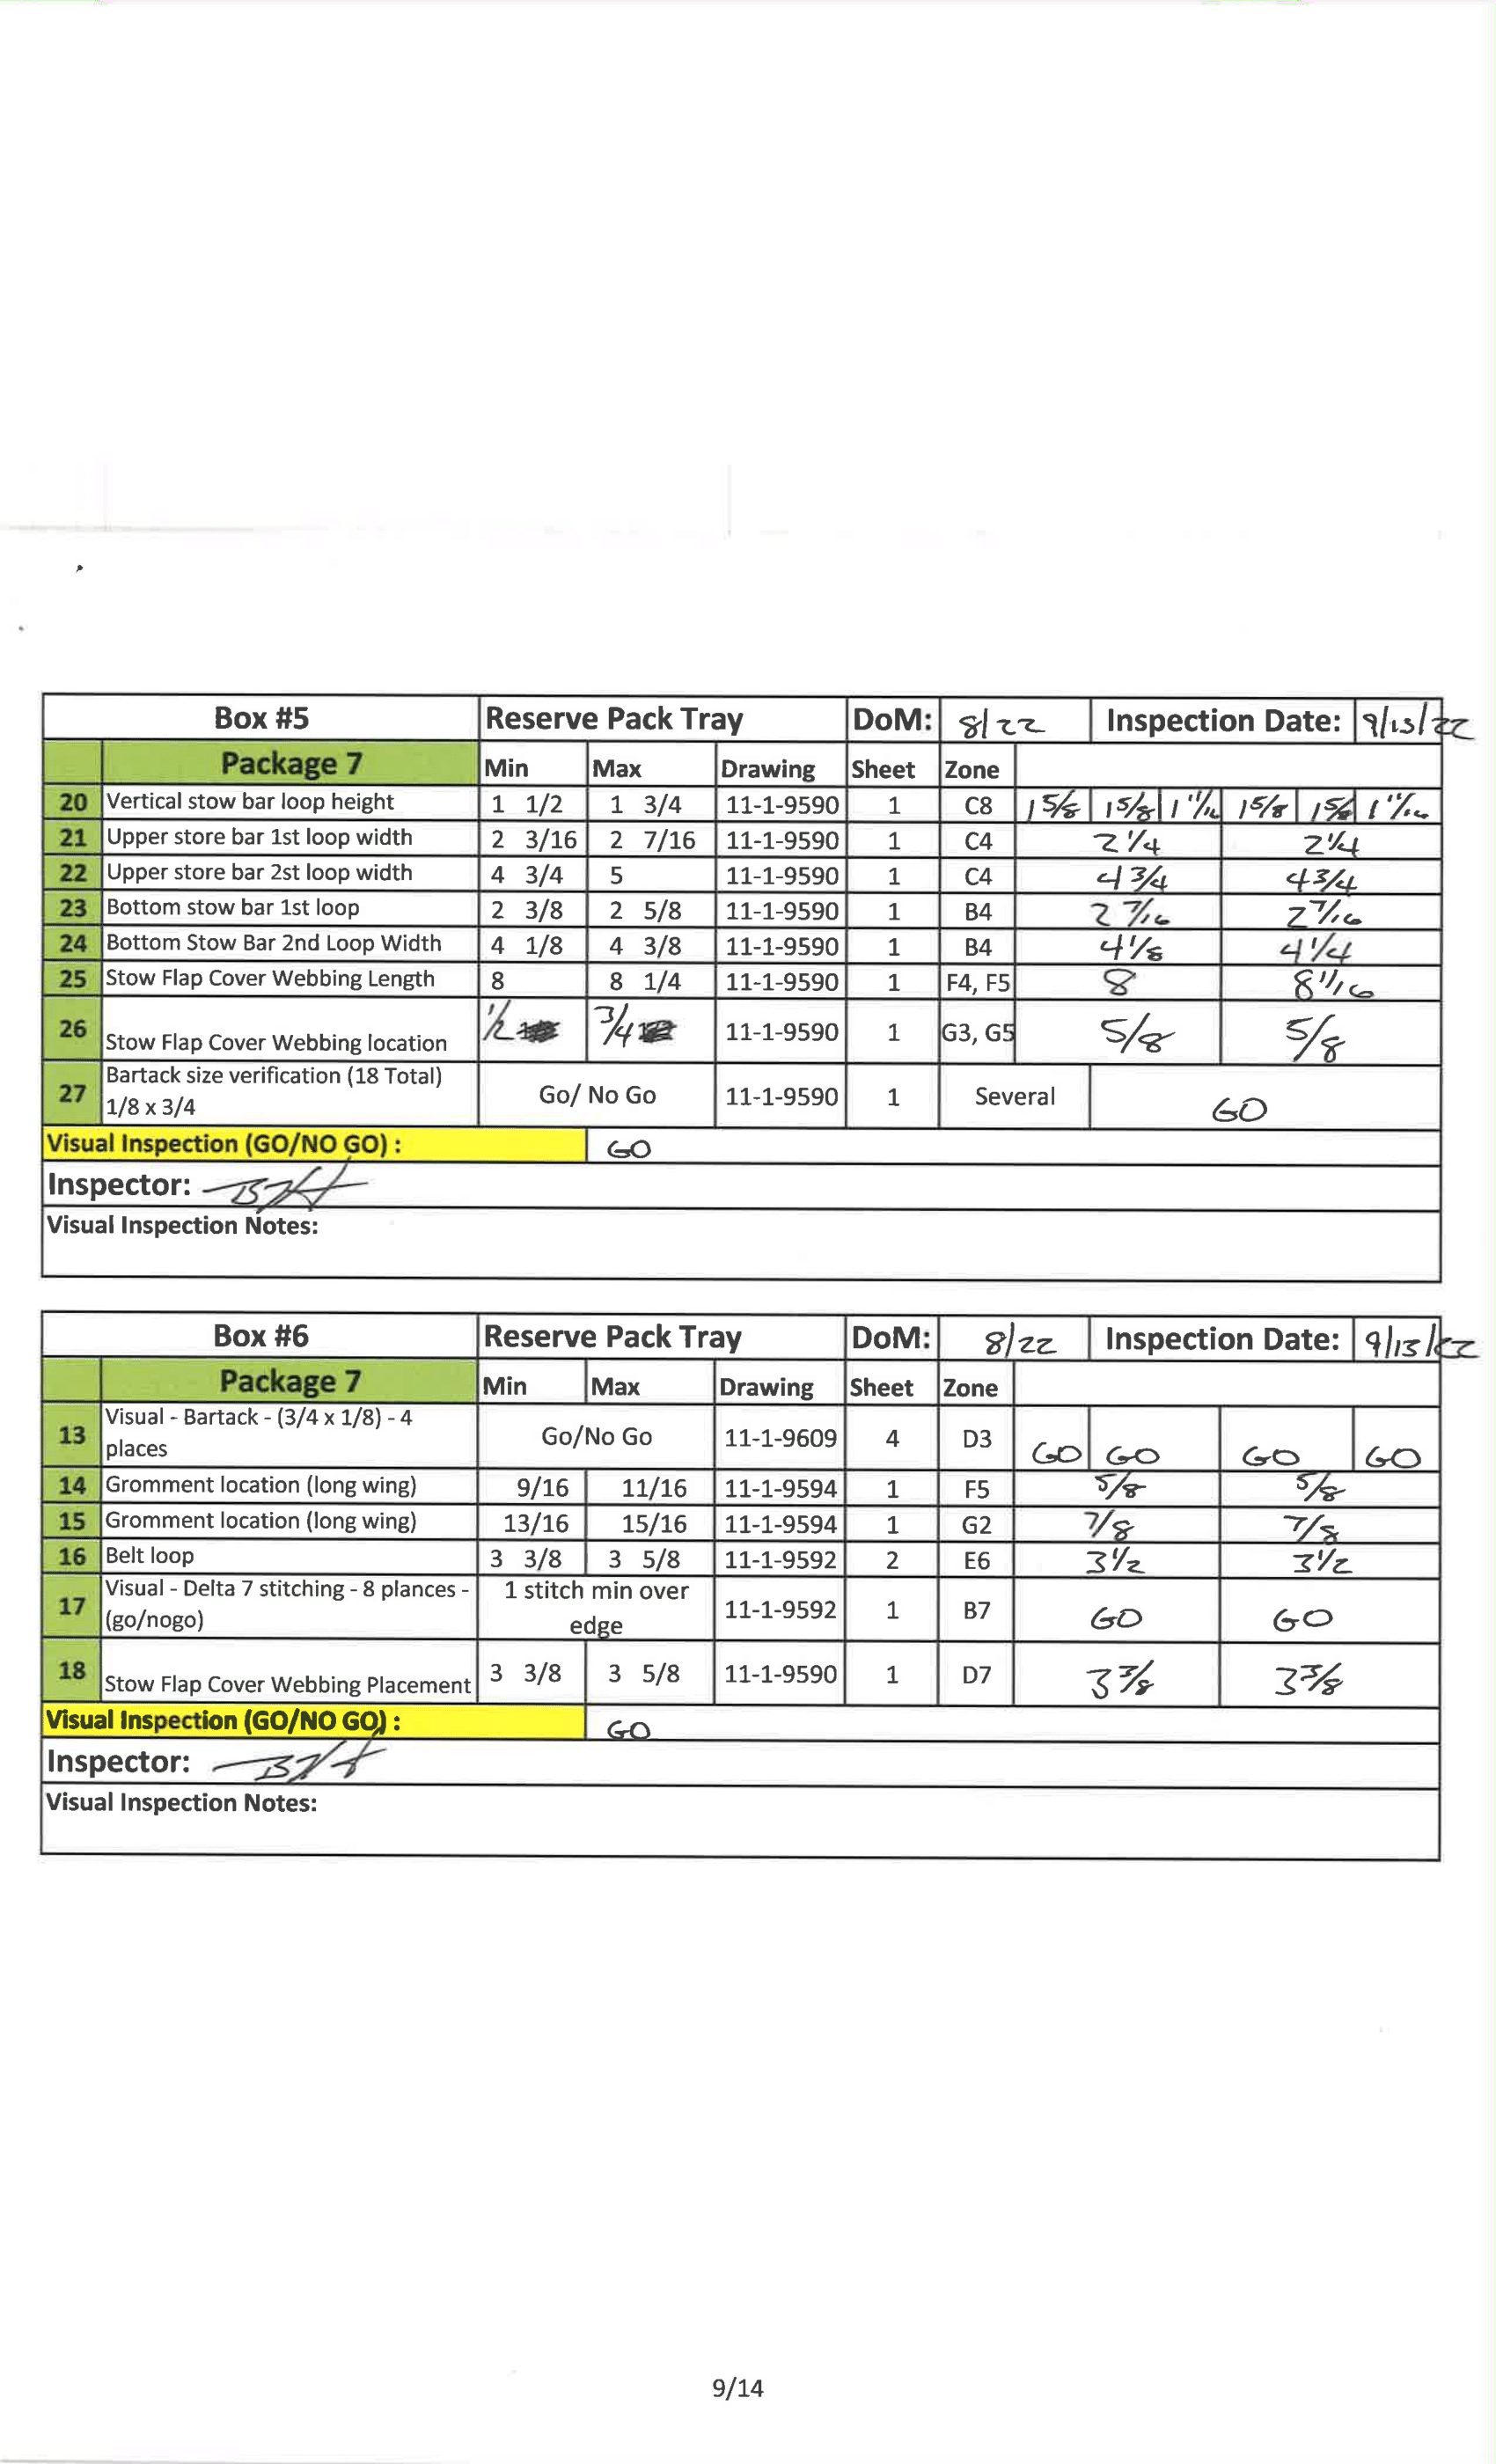 Box #5 Reserve Pack Tray DoM: 8/22 Inspection Date: 9/13/22
Package 7 Min Max Drawing Sheet Zone
20 Vertical stow bar loop height 1 1/2 1 3/4 11-1-9590 1 C8 1 5/8 1 5/8 1 11/16 1 5/8 1 5/8 1 11/16
21 Upper store bar 1st loop width 2 3/16 2 7/16 11-1-9590 1 C4 2 1/4 2 1/4
22 Upper store bar 2st loop width 4 3/4 5 11-1-9590 1 C4 4 3/4 4 3/4
23 Bottom stow bar 1st loop 2 3/8 2 5/8 11-1-9590 1 B4 2 7/16 2 7/16
24 Bottom Stow Bar 2nd Loop Width 4 1/8 4 3/8 11-1-9590 1 B4 4 1/8 4 1/4
25 Stow Flap Cover Webbing Length 8 8 1/4 11-1-9590 1 F4, F5 8 8 1/16
26 Stow Flap Cover Webbing location 1/2 3/4 11-1-9590 1 G3, G5 5/8 5/8
27 Bartack size verification (18 Total)
1/8 x 3/4 Go/ No Go 11-1-9590 1 Several GO
Visual Inspection (GO/NO GO) : GO
Inspector:
Visual Inspection Notes:
Box #6 Reserve Pack Tray DoM: 8/22 Inspection Date: 9/13/22
Package 7 Min Max Drawing Sheet Zone
13 Visual - Bartack - (3/4 x 1/8) - 4
places Go/No Go 11-1-9609 4 D3 GO GO GO GO
14 Gromment location (long wing) 9/16 11/16 11-1-9594 1 F5 5/8 5/8
15 Gromment location (long wing) 13/16 15/16 11-1-9594 1 G2 7/8 7/8
16 Belt loop 3 3/8 3 5/8 11-1-9592 2 E6 3 1/2 3 1/2
17 Visual - Delta 7 stitching - 8 plances -
(go/nogo) 1 stitch min over
edge 11-1-9592 1 B7 GO GO
18 Stow Flap Cover Webbing Placement 3 3/8 3 5/8 11-1-9590 1 D7 3 3/8 3 3/8
Visual Inspection (GO/NO GO) : GO
Inspector:
Visual Inspection Notes:
9/14